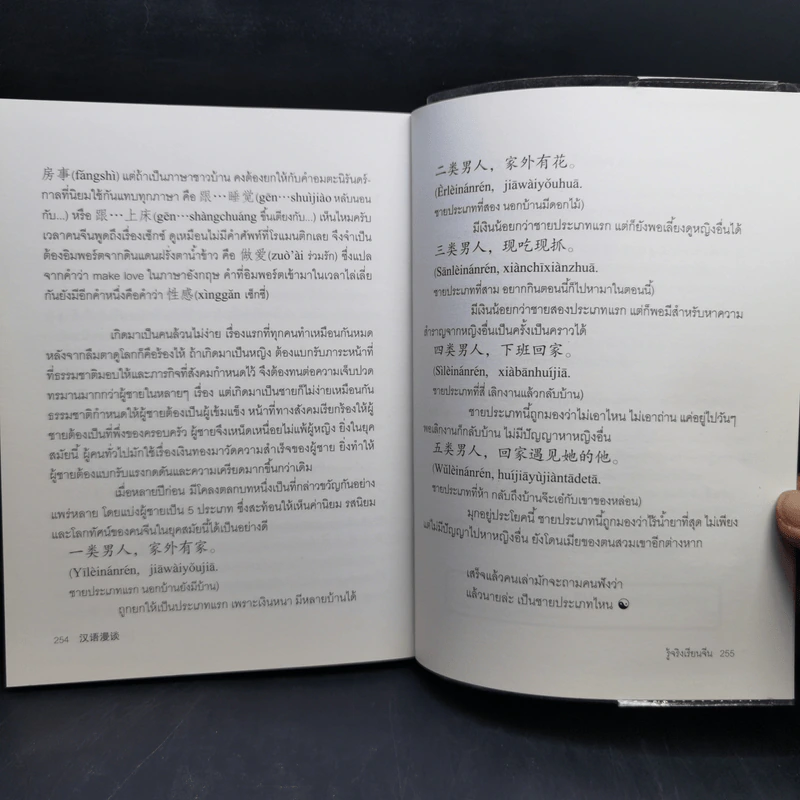 房事(fángshì) แต่ถ้าเป็นภาษาชาวบ้าน คงต้องยกให้กับคำอมตะนิรันดร์-
กาลที่นิยมใช้กันแทบทุกภาษา คือ 跟…睡觉(gēn…shuìjiào หลับนอน
กับ...) หรือ 跟…上床(gēn…shàngchuáng ขึ้นเตียงกับ...) เห็นไหมครับ
เวลาคนจีนพูดถึงเรื่องเซ็กซ์ ดูเหมือนไม่มีคำศัพท์ที่โรแมนติกเลย จึงจำเป็น
ต้องอิมพอร์ตจากดินแดนฝรั่งตาน้ำข้าว คือ 做爱(zuò'ài ร่วมรัก) ซึ่งแปล
จากคำว่า make love ในภาษาอังกฤษ คำที่อิมพอร์ตเข้ามาในเวลาไล่เลี่ย
กันยังมีอีกคำหนึ่งคือคำว่า 性感(xìnggǎn เซ็กซี่)
เกิดมาเป็นคนล้วนไม่ง่าย เรื่องแรกที่ทุกคนทำเหมือนกันหมด
หลังจากลืมตาดูโลกก็คือร้องไห้ ถ้าเกิดมาเป็นหญิง ต้องแบกรับภาระหน้าที่
ที่ธรรมชาติมอบให้และภารกิจที่สังคมกำหนดไว้ จึงต้องทนต่อความเจ็บปวด
ทรมานมากกว่าผู้ชายในหลายๆ เรื่อง แต่เกิดมาเป็นชายก็ไม่ง่ายเหมือนกัน
ธรรมชาติกำหนดให้ผู้ชายต้องเป็นผู้เข้มแข็ง หน้าที่ทางสังคมเรียกร้องให้ผู้
ชายต้องเป็นที่พึ่งของครอบครัว ผู้ชายจึงเหน็ดเหนื่อยไม่แพ้ผู้หญิง ยิ่งในยุค
สมัยนี้ ผู้คนทั่วไปมักใช้เรื่องเงินทองมาวัดความสำเร็จของผู้ชาย ยิ่งทำให้
ผู้ชายต้องแบกรับแรงกดดันและความเครียดมากขึ้นกว่าเดิม
เมื่อหลายปีก่อน มีโคลงตลกบทหนึ่งที่เป็นที่กล่าวขวัญกันอย่าง
แพร่หลาย โดยแบ่งผู้ชายเป็น 5 ประเภท ซึ่งสะท้อนให้เห็นค่านิยม รสนิยม
และโลกทัศน์ของคนจีนในยุคสมัยนี้ได้เป็นอย่างดี
一类男人，家外有家。
(Yīlèinánrén, jiāwàiyǒujiā.
ชายประเภทแรก นอกบ้านยังมีบ้าน)
ถูกยกให้เป็นประเภทแรก เพราะเงินหนา มีหลายบ้านได้
254 汉语漫谈
二类男人，家外有花。
(Èrlèinánrén, jiāwàiyǒuhuā.
ชายประเภทที่สอง นอกบ้านมีดอกไม้)
มีเงินน้อยกว่าชายประเภทแรก แต่ก็ยังพอเลี้ยงดูหญิงอื่นได้
三类男人，现吃现抓。
(Sānlèinánrén, xiànchīxiànzhuā.
ชายประเภทที่สาม อยากกินตอนนี้ก็ไปหามาในตอนนี้)
มีเงินน้อยกว่าชายสองประเภทแรก แต่ก็พอมีสำหรับหาความ
สำราญจากหญิงอื่นเป็นครั้งเป็นคราวได้
四类男人，下班回家。
(Sìlèinánrén, xiàbānhuíjiā.
ชายประเภทที่สี่ เลิกงานแล้วกลับบ้าน)
ชายประเภทนี้ถูกมองว่าไม่เอาไหน ไม่เอาถ่าน แค่อยู่ไปวันๆ
พอเลิกงานก็กลับบ้าน ไม่มีปัญญาหาหญิงอื่น
五类男人，回家遇见她的他。
(Wǔlèinánrén, huíjiāyùjiàntādetā.
ชายประเภทที่ห้า กลับถึงบ้านจึะเอ๋กับเขาของหล่อน)
มุกอยู่ประโยคนี้ ชายประเภทนี้ถูกมองว่าไร้น้ำยาที่สุด ไม่เพียง
แต่ไม่มีปัญญาไปหาหญิงอื่น ยังโดนเมียของตนสวมเขาอีกต่างหาก
เสร็จแล้วคนเล่ามักจะถามคนฟังว่า
แล้วนายล่ะ เป็นชายประเภทไหน ☯
รู้จริงเรียนจีน 255